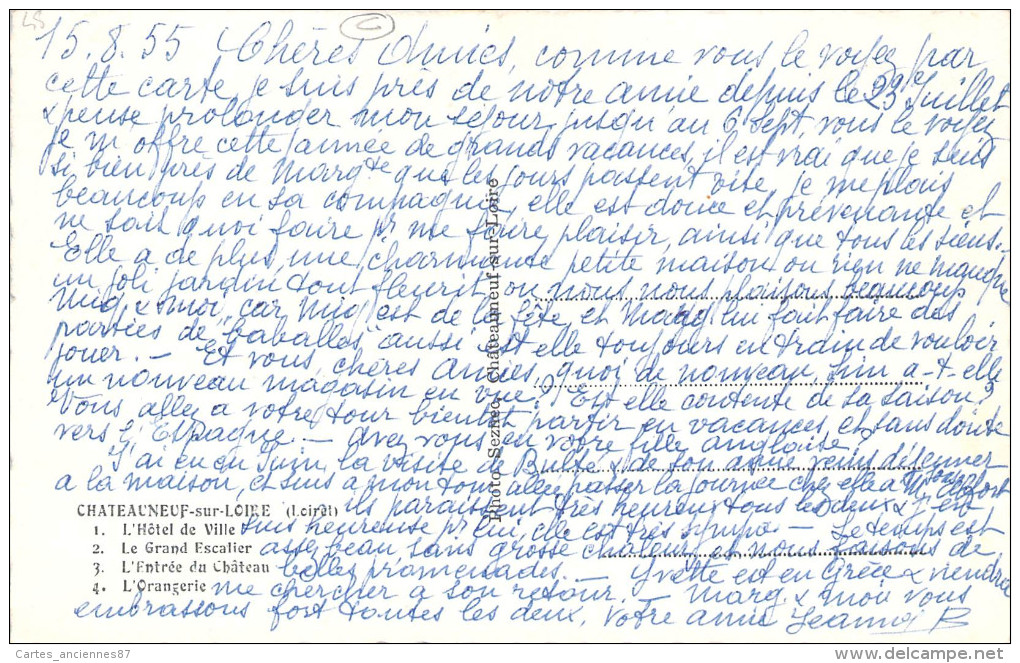 15.8.55 Chères Amies, comme vous le voyez par
cette carte, je suis près de notre amie depuis le 23 Juillet
& pense prolonger mon séjour jusqu'au 6 Sept, vous le voyez
je m'offre cette année de grands vacances, il est vrai que je suis
si bien près de Margte que les jours passent vite, je me plais
beaucoup en sa compagnie, elle est douce et prévenante et
ne sait quoi faire pr me faire plaisir, ainsi que tous les siens.-
Elle a de plus, une charmante petite maison ou rien ne manque
un joli jardin tout fleurit, ou nous nous plaisons beaucoup
Mig, & moi, car Mig est de la fête et Marg lui fait faire des
parties de "baballes" aussi est elle toujours en train de vouloir
jouer. - Et vous, chères Amies, quoi de nouveau, a-t-elle
un nouveau magasin en vue? Est elle contente de sa saison?
Vous allez a votre tour bientôt partir en vacances, et sans doute
vers l'Espagne - Avez vous eu votre fille anglaise?
J'ai eu en Juin, la visite de & de son venus déjeuner
a la maison, et suis a mon tour allée passer la journée chez elle a
ils paraissent très heureux tous les deux & j'en
suis heureuse pr lui, elle est très sympa - Le temps est
assez beau, sans grosse chaleur et nous faisons de
belles promenades. - Yvette est en Grèce & viendra
me chercher a son retour. - Marg & moi vous
embrassons fort toutes les deux. Votre amie B
CHATEAUNEUF-sur-LOIRE (Loiret)
1. L'Hôtel de Ville
2. Le Grand Escalier
3. L'Entrée du Château
4. L'Orangerie
Photo Seznec, Châteauneuf-sur-Loire
Cartes_anciennes87
delcampe.net